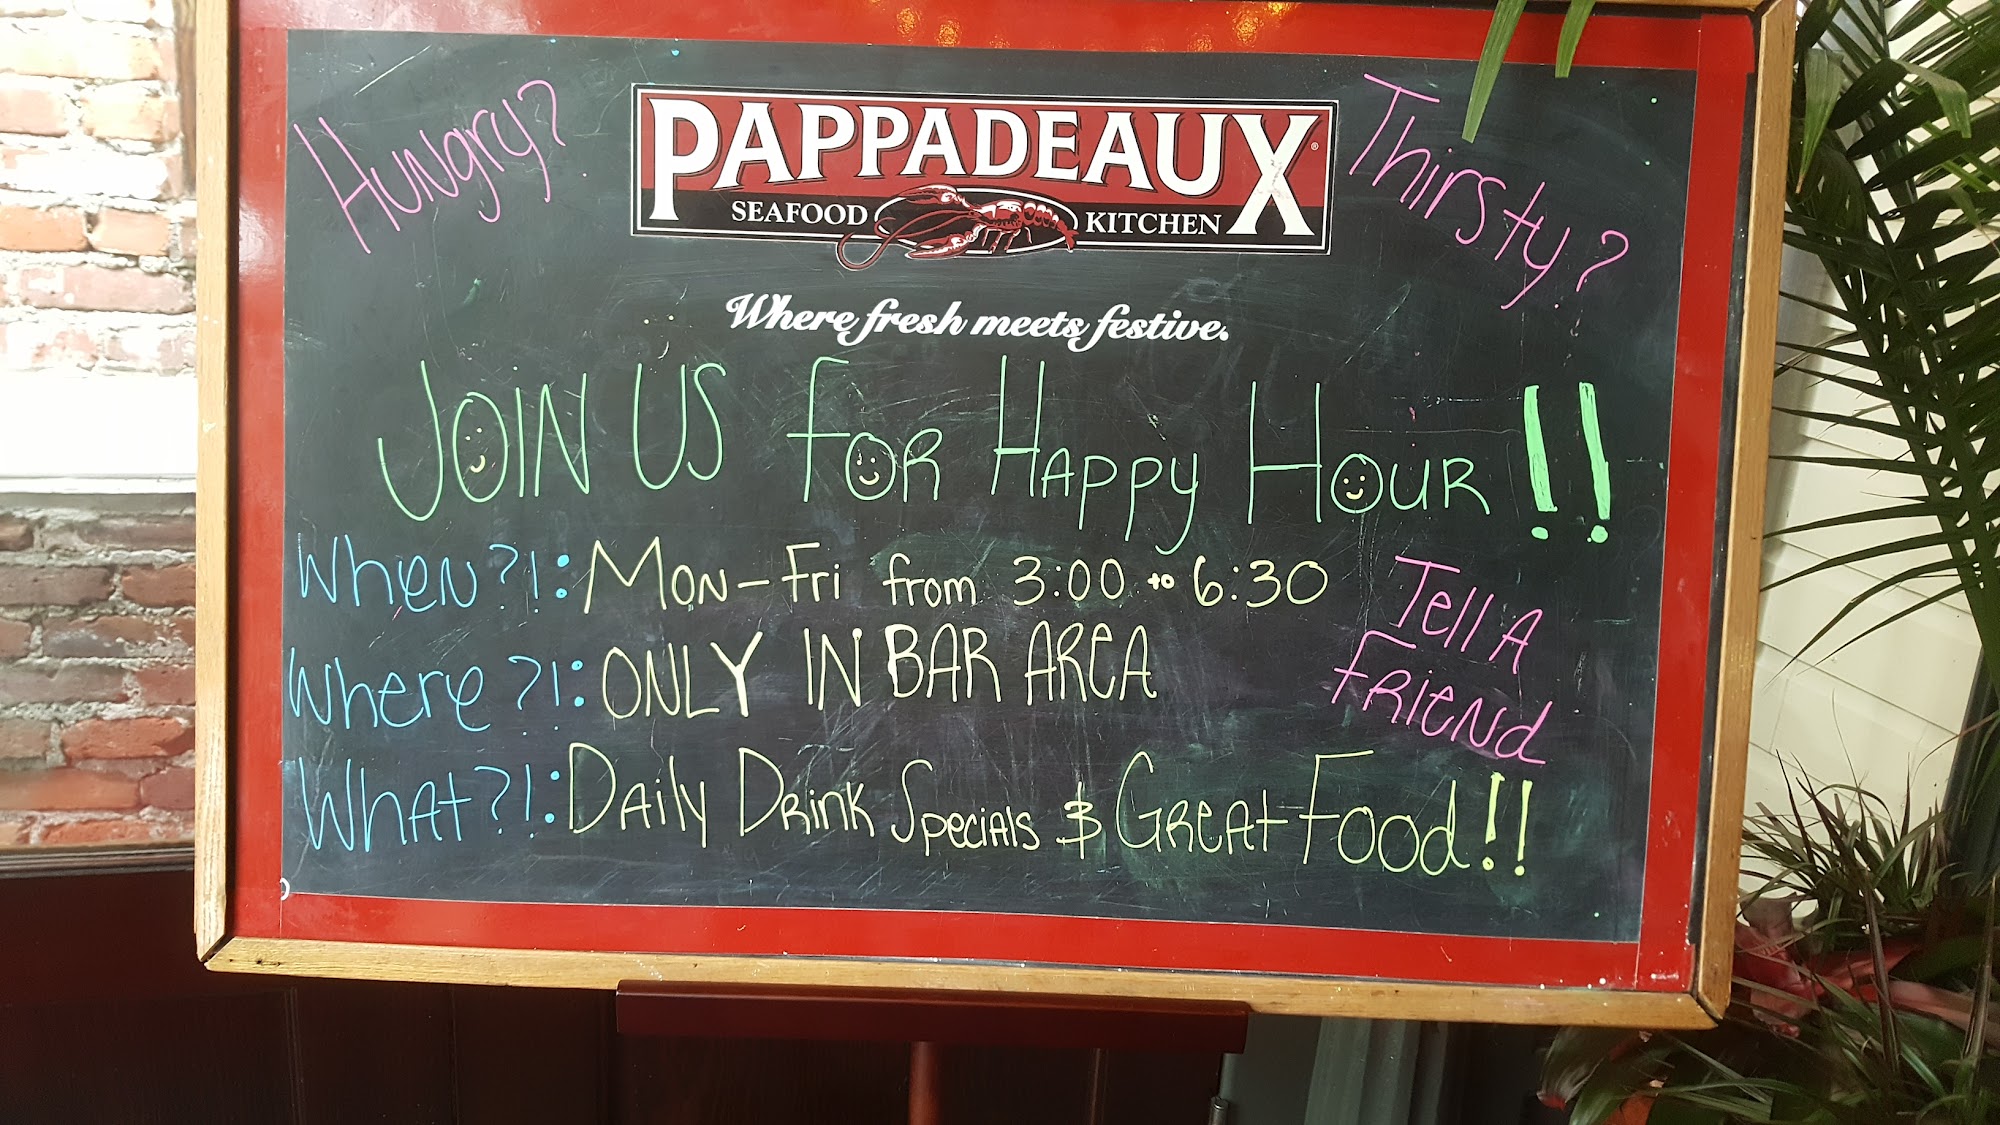 Hungry?
PAPPADEAUX®
SEAFOOD KITCHEN
Thirsty?
Where fresh meets festive.
JOIN US FOR HAPPY HOUR!!
When?!: MON-Fri from 3:00 to 6:30
Where?!: ONLY IN BAR AREA
Tell A
Friend
What?!: Daily Drink Specials & Great Food!!